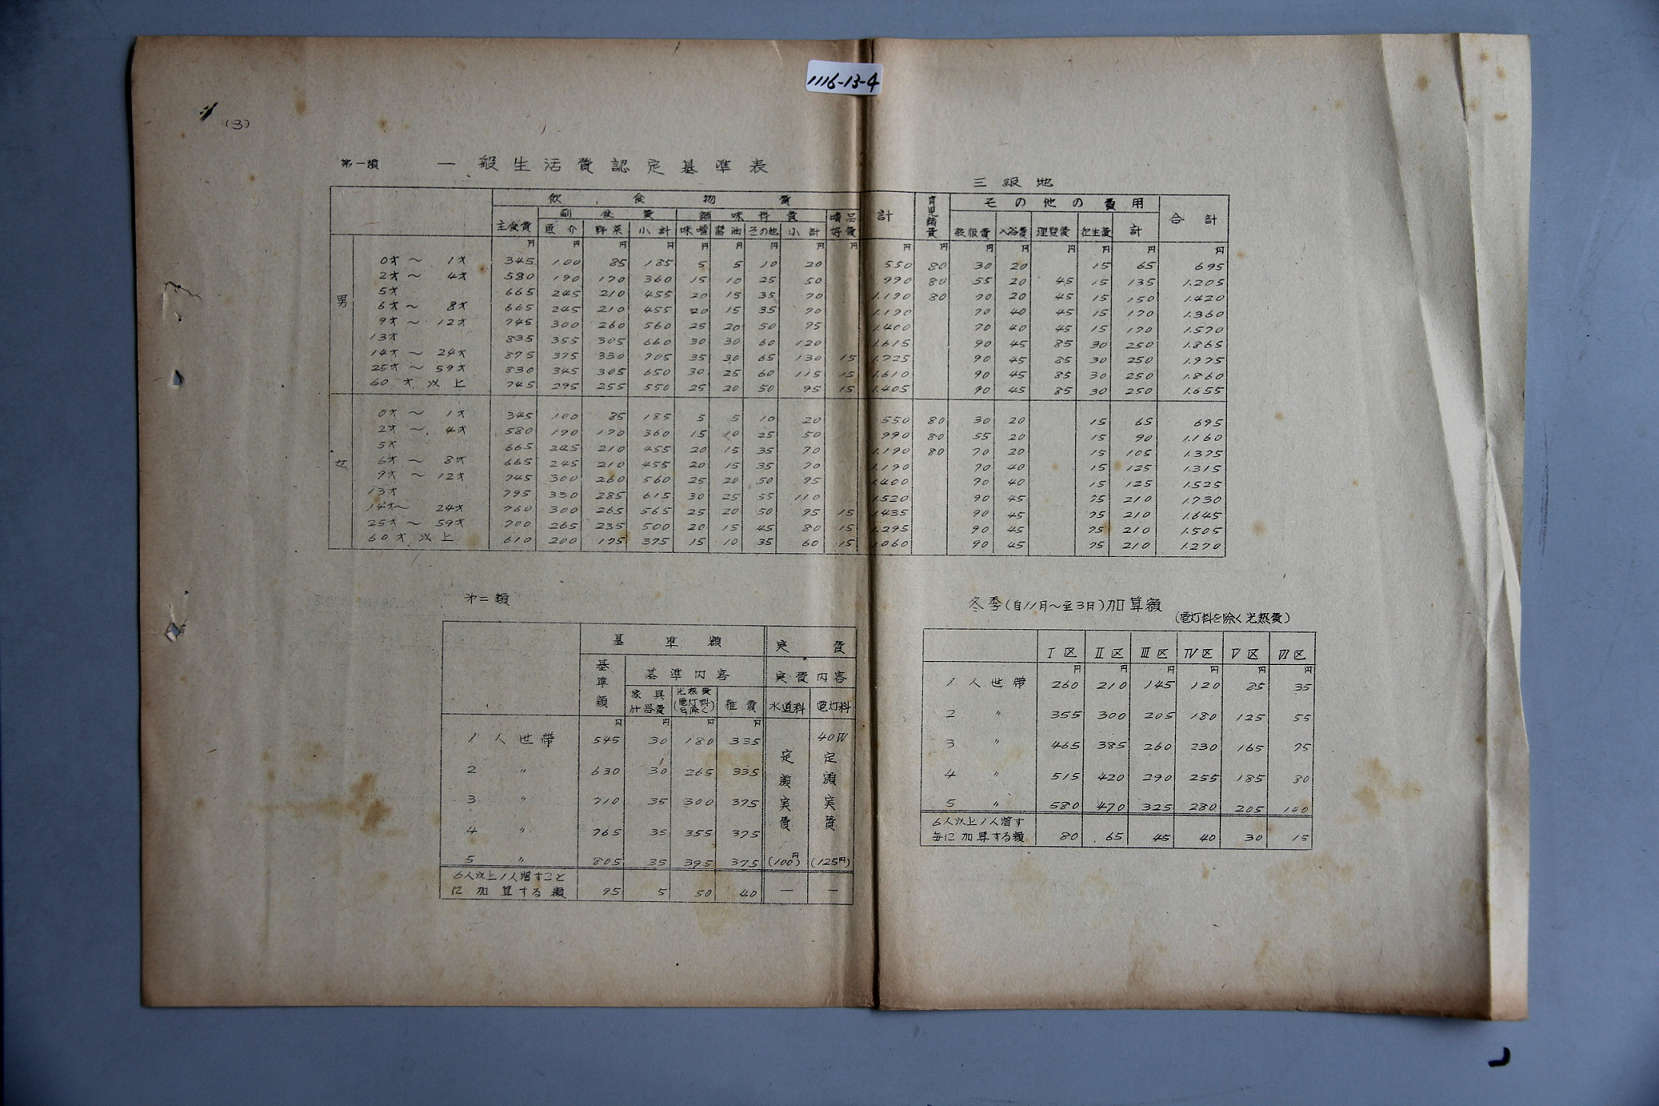 1116-13-4
(3)
第一類 一般生活費認定基準表
三級地
飲食物費 計 育児諸費 その他の費用 合計
主食費 副食費 調味料費 嗜好品費
魚介 野菜 小計 味噌 醤油 その他 小計 被服費 入浴費 理髪費 衛生費 計
円 円 円 円 円 円 円 円 円 円 円 円 円 円 円 円 円
男
0才〜1才 345 100 85 185 5 5 10 20 550 80 30 20 15 65 695
2才〜4才 580 190 170 360 15 10 25 50 990 80 55 20 45 15 135 1.205
5才 665 245 210 455 20 15 35 70 1.190 80 70 20 45 15 150 1.420
6才〜8才 665 245 210 455 20 15 35 70 1.190 70 40 45 15 170 1.360
9才〜12才 745 300 260 560 25 20 50 95 1.400 70 40 45 15 170 1.570
13才 835 355 305 660 30 30 60 120 1.615 90 45 85 30 250 1.865
14才〜24才 875 375 330 705 35 30 65 130 15 1.725 90 45 85 30 250 1.975
25才〜59才 830 345 305 650 30 25 60 115 15 1.610 90 45 85 30 250 1.860
60才以上 745 295 255 550 25 20 50 95 15 1.405 90 45 85 30 250 1.655
女
0才〜1才 345 100 85 185 5 5 10 20 550 80 30 20 15 65 695
2才〜4才 580 190 170 360 15 10 25 50 990 80 55 20 15 90 1.160
5才 665 245 210 455 20 15 35 70 1.190 80 70 20 15 105 1.375
6才〜8才 665 245 210 455 20 15 35 70 1.190 70 40 15 125 1.315
9才〜12才 745 300 260 560 25 20 50 95 1.400 70 40 15 125 1.525
13才 795 330 285 615 30 25 55 110 1.520 90 45 75 210 1.730
14才〜24才 760 300 265 565 25 20 50 95 15 1.435 90 45 75 210 1.645
25才〜59才 700 265 235 500 20 15 45 80 15 1.295 90 45 75 210 1.505
60才以上 610 200 175 375 15 10 35 60 15 1.060 90 45 75 210 1.270
才二類
基準額 実費
基準額 基準内容 実費内容
家具什器費 光熱費(電灯料を除く) 雑費 水道料 電灯料
円 円 円 円
1人世帯 545 30 180 335 定額実費 40W 定額実費
2 〃 630 30 265 335
3 〃 710 35 300 375
4 〃 765 35 355 375
5 〃 805 35 395 375 (100円) (125円)
6人以上1人増すことに加算する額 95 5 50 40 — —
冬季(自11月〜至3月)加算額
(電灯料を除く光熱費)
I区 II区 III区 IV区 V区 VI区
円 円 円 円 円 円
1人世帯 260 210 145 120 85 35
2 〃 355 300 205 180 125 55
3 〃 465 385 260 230 165 75
4 〃 515 420 290 255 185 80
5 〃 580 470 325 280 205 100
6人以上1人増す毎に加算する額 80 65 45 40 30 15